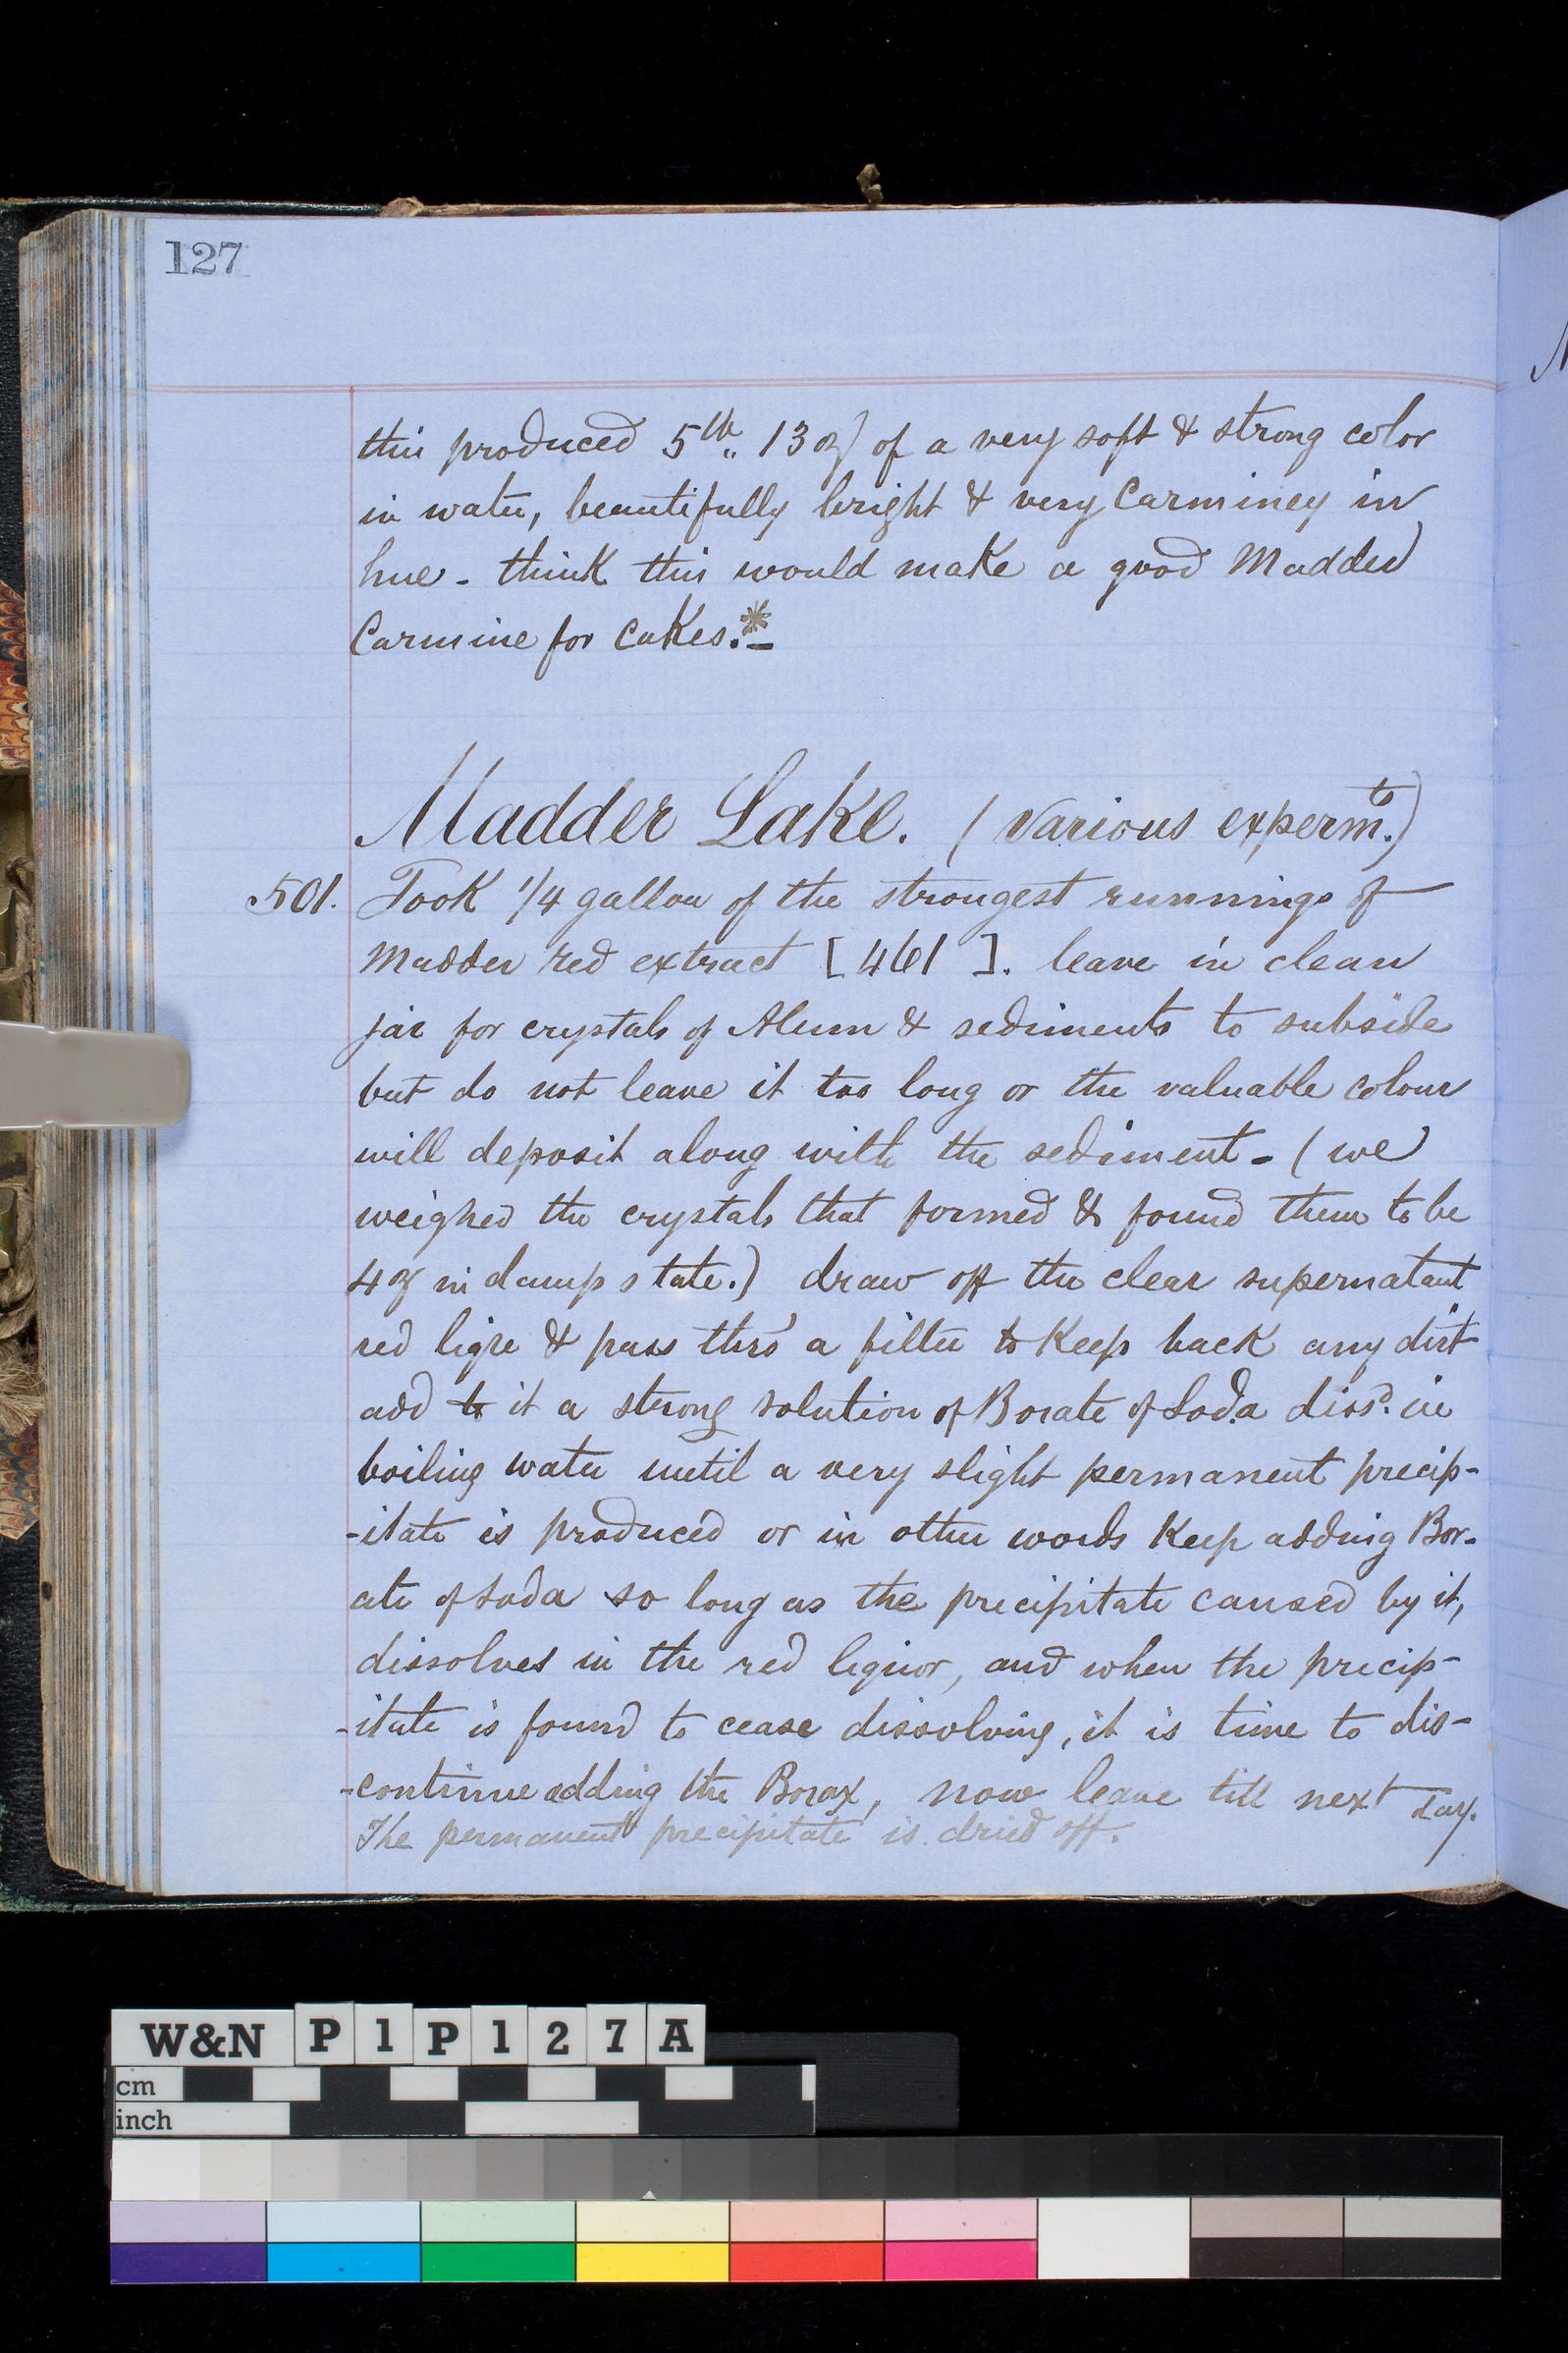 127
this produced 5lb,, 13oz of a very soft & strong color
in water, beautifully bright & very Carminey in
hue - think this would make a good Madder
Carmine for Cakes.*-
Madder Lake. (Various experm.ts)
501. Took 1/4 gallon of the strongest runnings of
Madder red extract [461]. leave in clean
jar for crystals of Alum & sediments to subside
but do not leave it too long or the valuable colour
will deposit along with the sediment - (we
weighed the crystals that formed & found them to be
4oz in damp state.) draw off the clear supernatant
red liqre & pass thro' a filter to Keep back any dirt
add to it a strong solution of Borate of Soda dissd. in
boiling water until a very slight permanent precip-
-itate is produced or in other words Keep adding Bor-
ate of Soda so long as the precipitate caused by it,
dissolves in the red liquor, and when the precip-
-itate is found to cease dissolving, it is time to dis-
-continue adding the Borax, now leave till next day.
The permanent precipitate is dried off.
W&N P1P127A
cm
inch